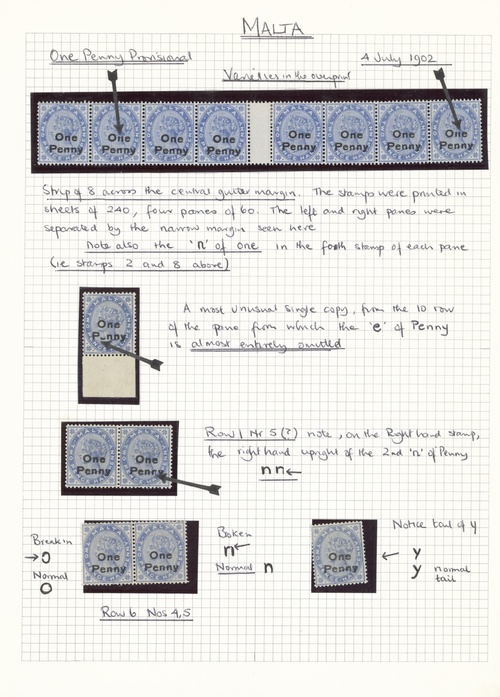 MALTA
One Penny Provisional
4 July 1902
Varieties in the overprint
One Penny One Penny One Penny One Penny One Penny One Penny One Penny One Penny
Strip of 8 across the central gutter margin. The stamps were printed in
sheets of 240, four panes of 60. The left and right panes were
separated by the narrow margin seen here
Note also the 'n' of one in the fourth stamp of each pane
(ie stamps 2 and 8 above)
MALTA
One
P nny
A most unusual single copy, from the 10 row
of the pane from which the 'e' of Penny
is almost entirely omitted
One Penny One Penny
Row 1 Nr 5 (?) note, on the Right hand stamp,
the right hand upright of the 2nd 'n' of Penny
nn
Break in
O
Normal
O
One Penny One Penny
Broken
n
Normal n
One
Penny
Notice tail of y
y
y normal
tail
Row 6 Nos 4,5